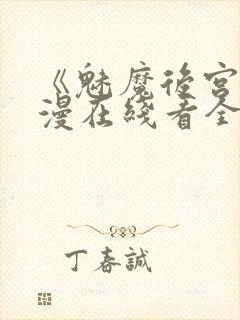 《魅魔後宮
漫在綫看全
丁春誠